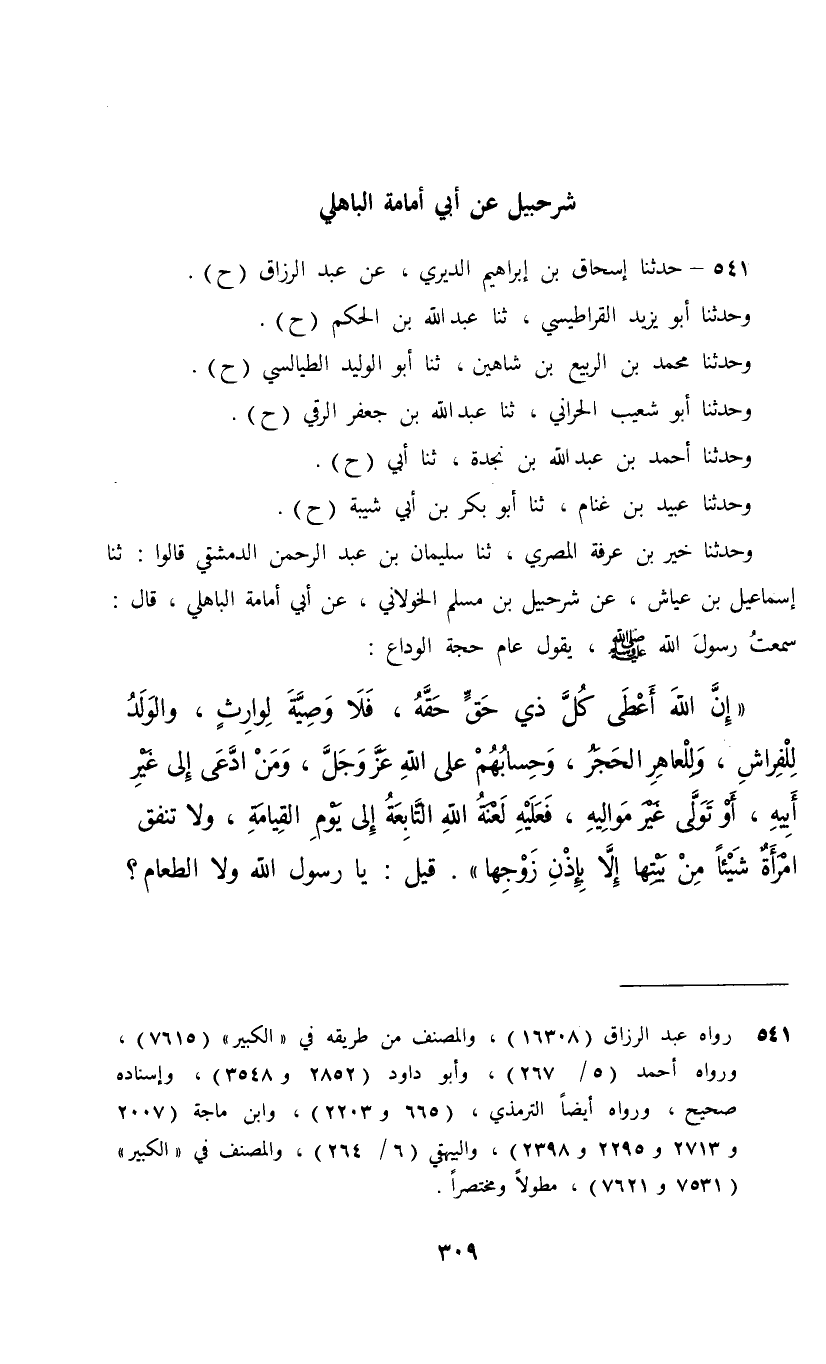 شرحبيل عن أبي أمامة الباهلي
٥٤١ – حدثنا إسحاق بن إبراهيم الديري ، عن عبد الرزاق (ح) .
وحدثنا أبو يزيد القراطيسي ، ثنا عبد الله بن الحكم (ح) .
وحدثنا محمد بن الربيع بن شاهين ، ثنا أبو الوليد الطيالسي (ح) .
وحدثنا أبو شعيب الحراني ، ثنا عبد الله بن جعفر الرقي (ح) .
وحدثنا أحمد بن عبد الله بن نجدة ، ثنا أبي (ح) .
وحدثنا عبيد بن غنام ، ثنا أبو بكر بن أبي شيبة (ح) .
وحدثنا خير بن عرفة المصري ، ثنا سليمان بن عبد الرحمن الدمشقي قالوا : ثنا
إسماعيل بن عياش ، عن شرحبيل بن مسلم الخولاني ، عن أبي أمامة الباهلي ، قال :
سمعتُ رسولَ الله ﷺ ، يقول عام حجة الوداع :
« إِنَّ اللهَ أَعْطَى كُلَّ ذي حَقٍّ حَقَّهُ ، فَلَا وَصِيَّةَ لِوارِثٍ ، والوَلَدُ
لِلْفِراشِ ، وَلِلْعاهِرِ الحَجَرُ ، وَحِسابُهُمْ على اللهِ عَزَّ وَجَلَّ ، وَمَنْ ادَّعَى إلى غَيْرِ
أَبِيهِ ، أَوْ تَوَلَّى غَيْرَ مَوالِيهِ ، فَعَلَيْهِ لَعْنَةُ اللهِ التَّابِعَةُ إلى يَوْمِ القِيامَةِ ، ولا تنفق
امْرَأَةٌ شَيْئاً مِنْ بَيْتِها إلَّا بِإِذْنِ زَوْجِها » . قيل : يا رسول الله ولا الطعام ؟
٥٤١ رواه عبد الرزاق (١٦٣٠٨) ، والمصنف من طريقه في « الكبير » (٧٦١٥) ،
ورواه أحمد (٥/ ٢٦٧) ، وأبو داود (٢٨٥٢ و ٣٥٤٨) ، وإسناده
صحيح ، ورواه أيضاً الترمذي ، (٦٦٥ و ٢٢٠٣) ، وابن ماجة (٢٠٠٧
و ٢٧١٣ و ٢٢٩٥ و ٢٣٩٨) ، والبيهقي (٦/ ٢٦٤) ، والمصنف في « الكبير »
(٧٥٣١ و ٧٦٢١) ، مطولاً ومختصراً .
٣٠٩